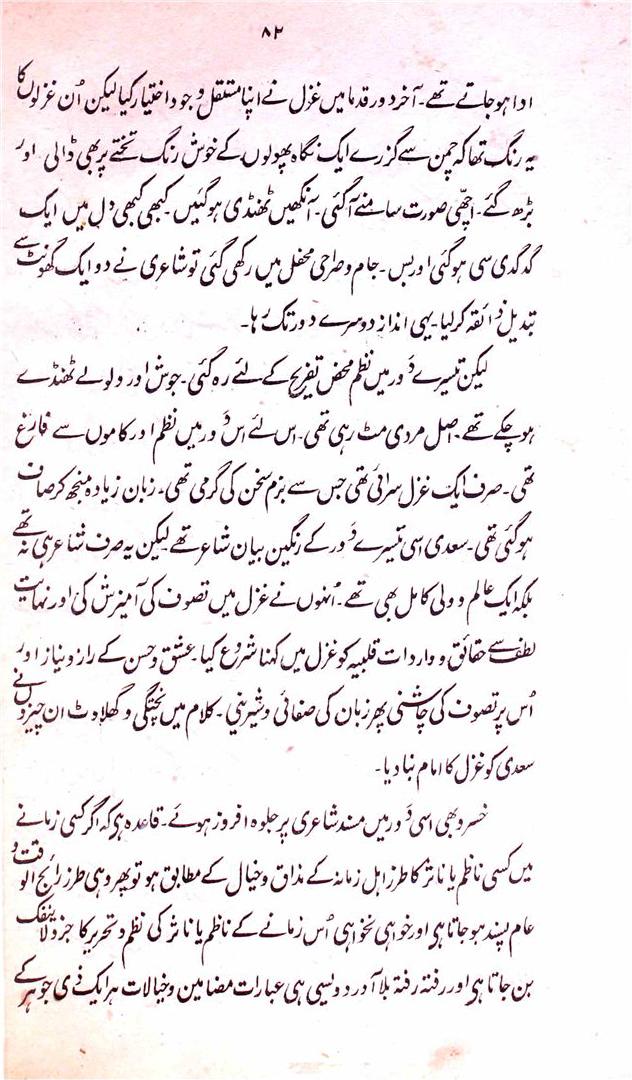 ۸۲
ادا ہو جاتے تھے۔ آخر دور قدما میں غزل نے اپنا مستقل وجود اختیار کیا لیکن اُن غزلوں کا
یہ رنگ تھا کہ چمن سے گزرے ایک نگاہ پھولوں کے خوش رنگ تختے پر بھی ڈالی اور
بڑھ گئے۔ اچھّی صورت سامنے آگئی۔ آنکھیں ٹھنڈی ہوگئیں۔ کبھی کبھی دل میں ایک
گدگدی سی ہوگئی اور بس۔ جام و صراحی محفل میں رکھی گئی تو شاعری نے دو ایک گھونٹ سے
تبدیل ذائقہ کر لیا۔ یہی انداز دوسرے دور تک رہا۔
لیکن تیسرے دَور میں نظم محض تفریح کے لئے رہ گئی۔ جوش اور ولولے ٹھنڈے
ہو چکے تھے۔ اصل مردی مٹ رہی تھی۔ اس لئے اس دَور میں نظم اور کاموں سے فارغ
تھی۔ صرف ایک غزل سرائی تھی جس سے بزم سخن کی گرمی تھی۔ زبان زیادہ منجھ کر صاف
ہوگئی تھی۔ سعدی اسی تیسرے دَور کے رنگین بیان شاعر تھے لیکن یہ صرف شاعر ہی نہ تھے
بلکہ ایک عالم و ولی کامل بھی تھے۔ اُنہوں نے غزل میں تصوف کی آمیزش کی اور نہایت
لطف سے حقائق و واردات قلبیہ کو غزل میں کہنا شروع کیا۔ عشق و حسن کے راز و نیاز اور
اُس پر تصوف کی چاشنی پھر زبان کی صفائی و شیرینی۔ کلام میں پختگی و گھلاوٹ ان چیزوں نے
سعدی کو غزل کا امام بنا دیا۔
خسرو بھی اسی دَور میں مسند شاعری پر جلوہ افروز ہوئے۔ قاعدہ ہی کہ اگر کسی زمانے
میں کسی ناظم یا ناثر کا طرز اہل زمانہ کے مذاق و خیال کے مطابق ہو تو پھر وہی طرز رائج الوقت و
عام پسند ہو جاتا ہی اور خواہی نخواہی اُس زمانے کے ناظم یا ناثر کی نظم و تحریر کا جزو لاینفک
بن جاتا ہی اور رفتہ رفتہ بلا آورد ویسی ہی عبارات مضامین و خیالات ہر ایک ذی جوہر کے